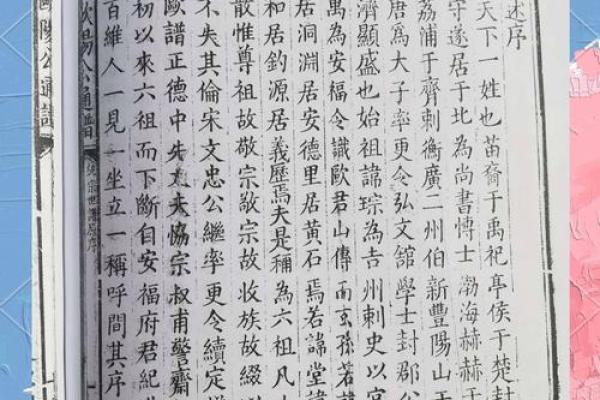 述序
天下一姓也苗裔于禹祀亭侯于楚封
守遂居于北為尚書博士渤海赫赫于
荔浦于齊刺衡廣二州伯新豐陽山
唐為大子率更令弘文舘學士封郡公
濟顯盛也始祖諱琮為吉州刺史以官
萬為安福令識歐君山傳而玄孫若諱
居洞淵居安德里居黄石焉若諱堂諱
和居釣源居義歷焉夫是稱為六祖凡
散惟尊祖故敬宗敬宗故收族故綴
不失其倫宋文忠公繼率更令續定
歐譜正德中先大夫恊宗叔甫警齋
初以來六祖而下斷自安福府君紀
百維人一見一坐立一稱呼間其序
歐陽公通譜
歐陽公通譜